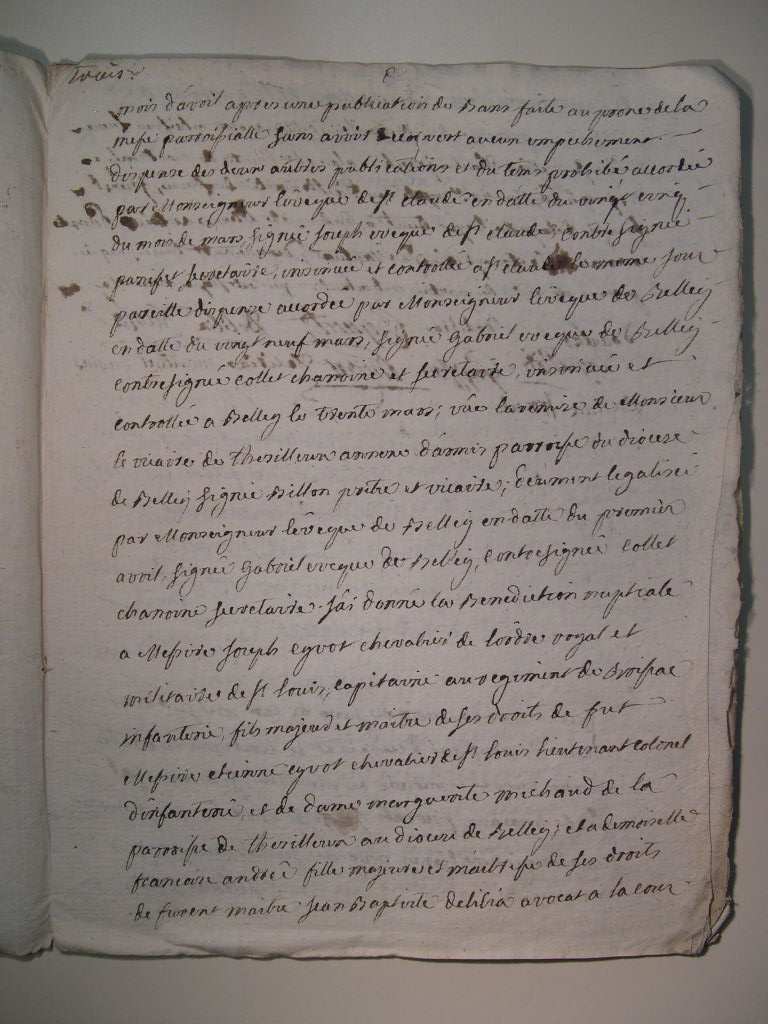 trois
mois davril apres une publication de Bans faite au prone de la
messe parroissialle sans avoir decouvert aucun empechement
dispense des deux autres publications et du tems prohibé accordée
par Monseigneur lévêque de st claude en datte du vingt
du mois de mars, signé joseph eveque de st claude, contresignée
secretaire, insinuée et controllée a st claude le meme jour
pareille dispense accordée par Monseigneur lévêque de Belley
en datte du vingt neuf mars, signé gabriel eveque de Belley
contresignée Collet chanoine et secretaire, insinuée et
controllée a Belley le trente mars; vûe la remise de Monsieur
le vicaire de therillieu annexe parroisse du diocese
de Belley signée Billon prêtre et vicaire; deument legalisé
par Monseigneur lévêque de Belley en datte du premier
avril, signé gabriel eveque de Belley, Contresignée Collet
chanoine secretaire jái donné la Benediction nuptiale
a Messire joseph eyvot chevalier de lordre royal et
militaire de st louis, capitaine au regiment de
infanterie, fils majeur et maitre de ses droits de fut
Messire etienne eyvot chevalier de st louis lieutenant colonel
dinfanterie, et de dame marguerite michaud de la
parroisse de therillieu au diocese de Belley; et a demoiselle
francoise andreé fille majeure et maitresse de ses droits
de furent maitre jean Baptiste delilia avocat a la cour